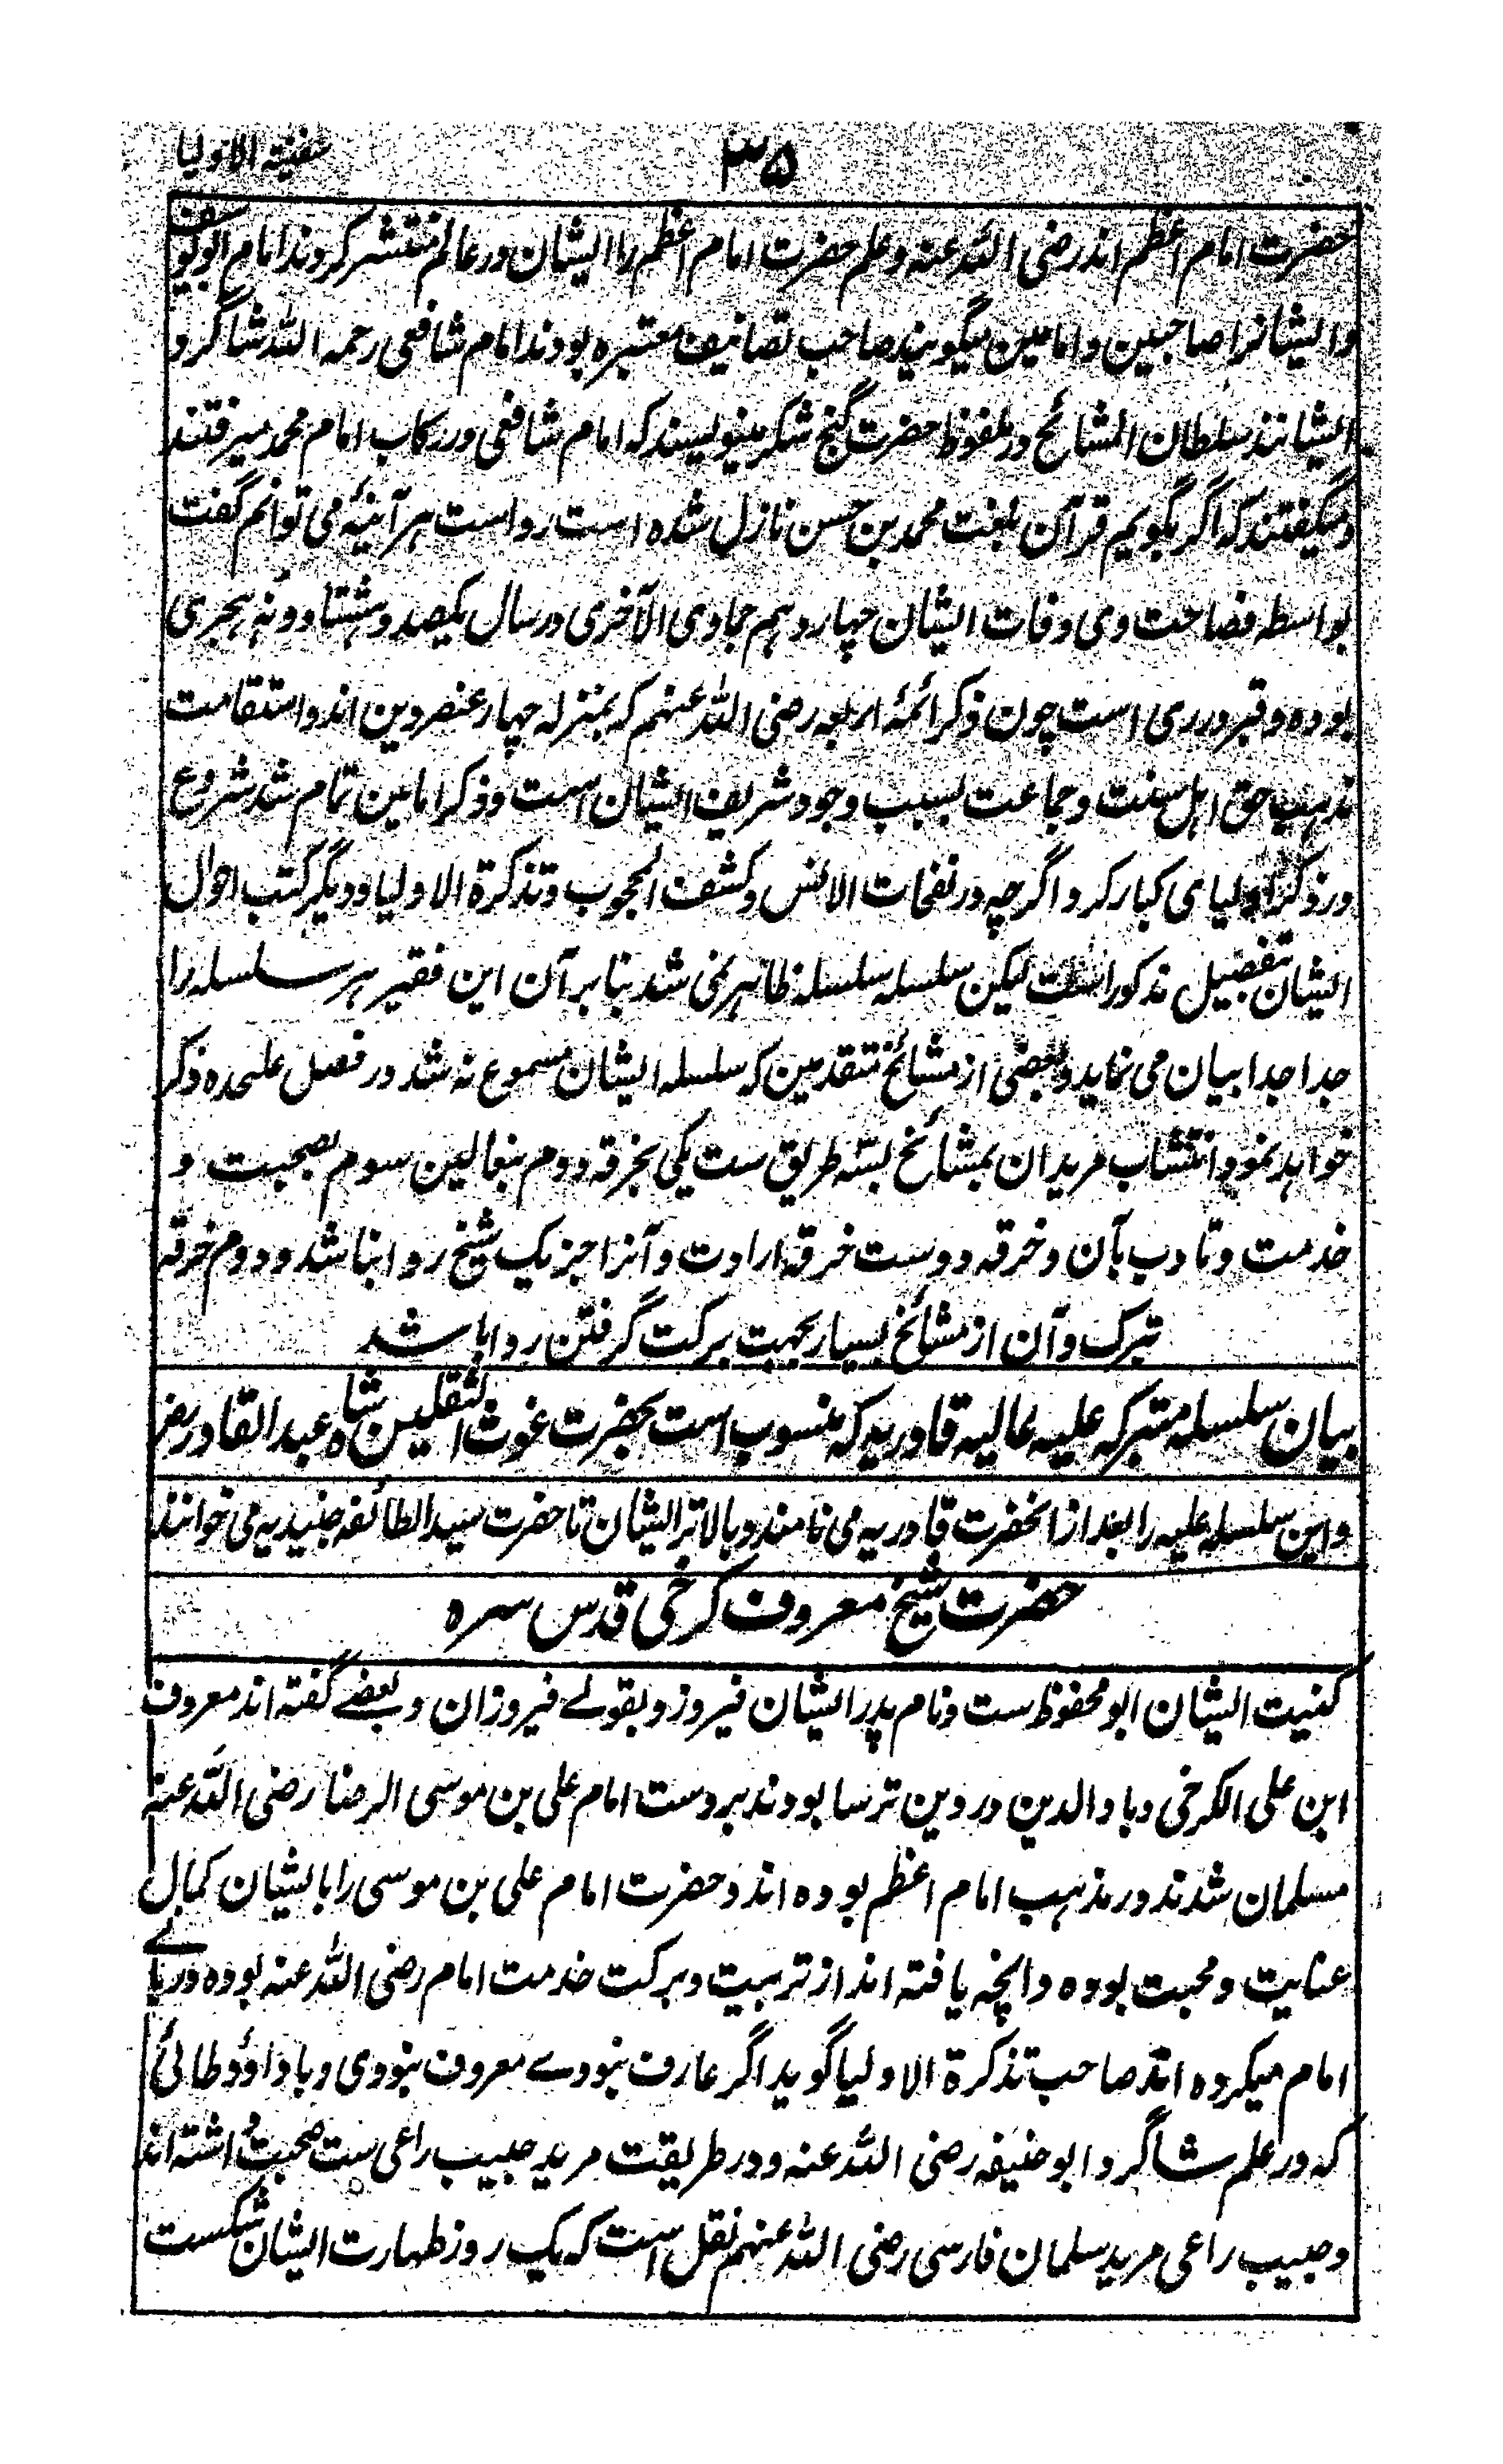 سفینة الاولیا
۳۵
حضرت امام اعظم اند رضی اللہ عنہ و علم حضرت امام اعظم را ایشان در عالم منتشر کردند امام ابویوسف
و ایشانرا صاحبین و امامین میگویند صاحب تصانیف معتبره بودند امام شافعی رحمه اللہ شاگرد
ایشانند سلطان المشائخ در ملفوظ حضرت گنج شکر مینویسند که امام شافعی در رکاب امام محمد میرفتند
و میگفتند که اگر بگویم قرآن بلغت محمد بن حسن نازل شده است رواست هر آئینه می توانم گفت
بواسطه فصاحت وی وفات ایشان چهاردهم جمادی الآخری در سال یکصد و هشتاد و نه هجری
بوده و قبر در ری است چون ذکر ائمهٔ اربعه رضی اللہ عنهم که بمنزله چهار عنصر دین اند و استقامت
مذهب حق اهل سنت و جماعت بسبب وجود شریف ایشان است و ذکر امامین تمام شد شروع
در ذکر اولیای کبار کرد اگرچه در نفحات الانس و کشف المحجوب و تذکرة الاولیا و دیگر کتب احوال
ایشان بتفصیل مذکور است لیکن سلسله سلسله ظاهر نمی شد بنابر آن این فقیر هر سلسله را
جدا جدا بیان می نماید و بعضی از مشائخ متقدمین که سلسله ایشان مسموع نه شد در فصل علحده ذکر
خواهد نمود انتساب مریدان بمشائخ بسته طریق ست یکی بخرقه دوم بتعالین سوم بصحبت و
خدمت و تادب بآن و خرقه دوست خرقه ارادت و آنرا جز یک شیخ روا نباشد و دوم خرقه
تبرک و آن از مشائخ بسیار بجهت برکت گرفتن روا باشد
بیان سلسله متبرکه علیه عالیه قادریه که منسوب است بحضرت غوث الثقلین شاه عبدالقادر رض
و این سلسله علیه را بعد از آنحضرت قادریه می نامند و بالاتر ایشان تا حضرت سید الطائفه جنیدیه می خوانند
حضرت شیخ معروف کرخی قدس سره
کنیت ایشان ابو محفوظ ست و نام پدر ایشان فیروز و بقولے فیروزان و بعضے گفته اند معروف
ابن علی الکرخی و با والدین در دین ترسا بودند بر دست امام علی بن موسی الرضا رضی اللہ عنه
مسلمان شدند در مذهب امام اعظم بوده اند و حضرت امام علی بن موسی را بایشان کمال
عنایت و محبت بوده و آنچه یافته اند از تربیت و برکت خدمت امام رضی اللہ عنه بوده دربانے
امام میکرده اند صاحب تذکرة الاولیا گوید اگر عارف نبودے معروف نبودی و با داؤد طائی
که در علم شاگرد ابو حنیفه رضی اللہ عنه و در طریقت مرید حبیب راعی ست صحبت داشته اند
و حبیب راعی مرید سلمان فارسی رضی اللہ عنهم نقل است که یک روز طهارت ایشان شکست